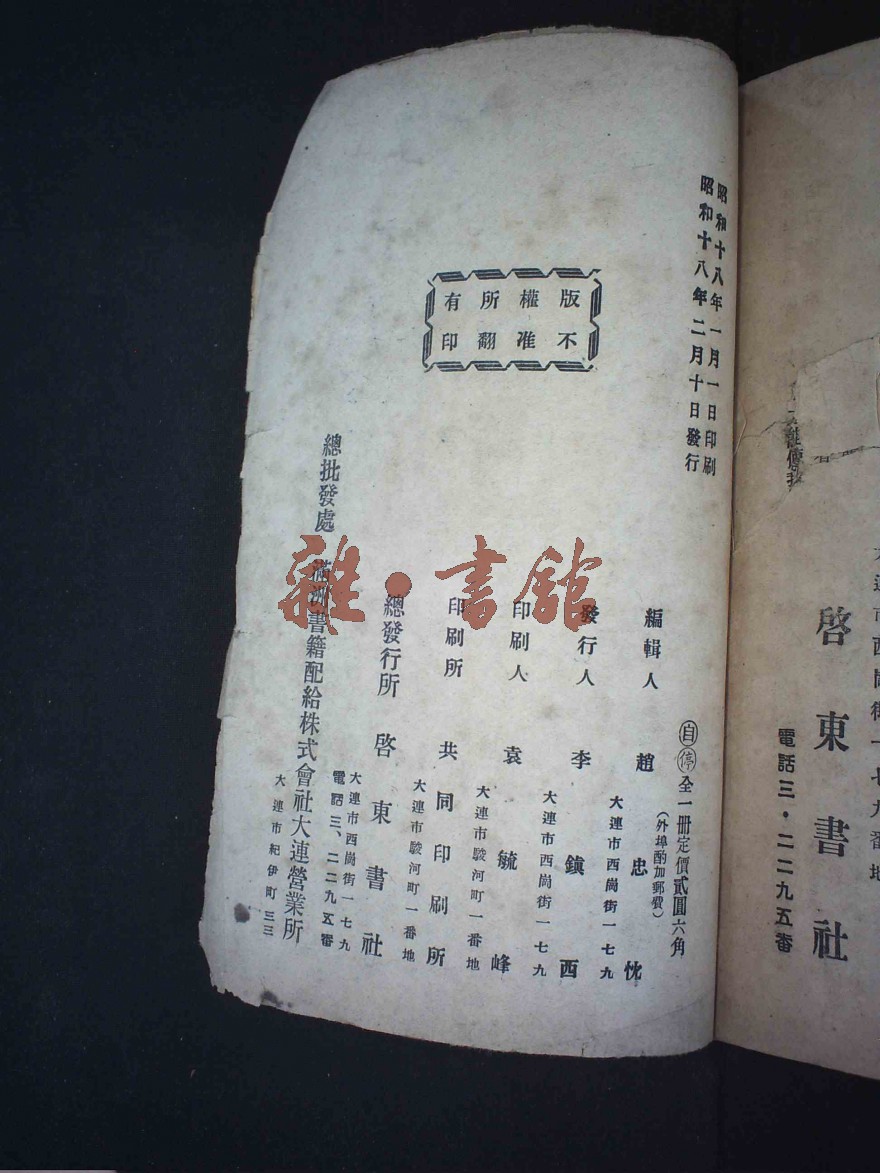 昭和十八年一月一日印刷
昭和十八年二月十日發行
版權所有
不准翻印
㊀自㊀停全一冊定價貳圓六角
(外埠酌加郵費)
編輯人 趙忠忱
大連市西崗街一七九
發行人 李鎮西
大連市西崗街一七九
印刷人 袁毓峰
大連市駿河町一番地
印刷所 共同印刷所
大連市駿河町一番地
總發行所 啓東書社
大連市西崗街一七九
電話三、二二九五番
總批發處 滿洲書籍配給株式會社大連營業所
大連市紀伊町三三
雜·書館
大連市西崗街一七九番地
啓東書社
電話三・二二九五番